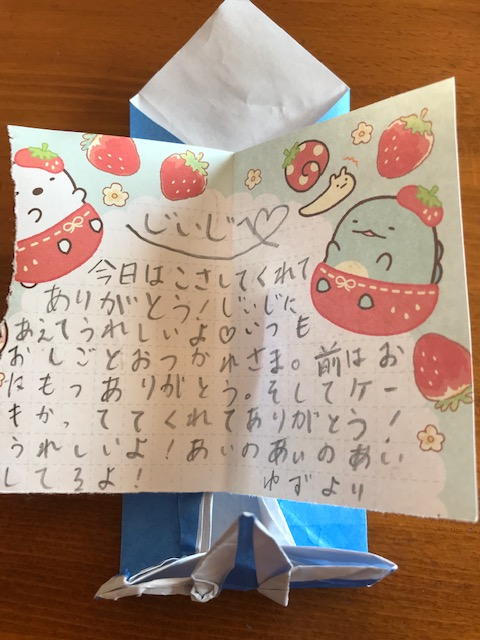 じいじへ♡
今日はこさしてくれて
ありがとう！じいじに
あえてうれしいよ♡いつも
おしごとおつかれさま。前はお
はもっありがとう。そしてケー
キかってててくれてありがとう！
うれしいよ！あいのあいのあい
してるよ！
ゆずより